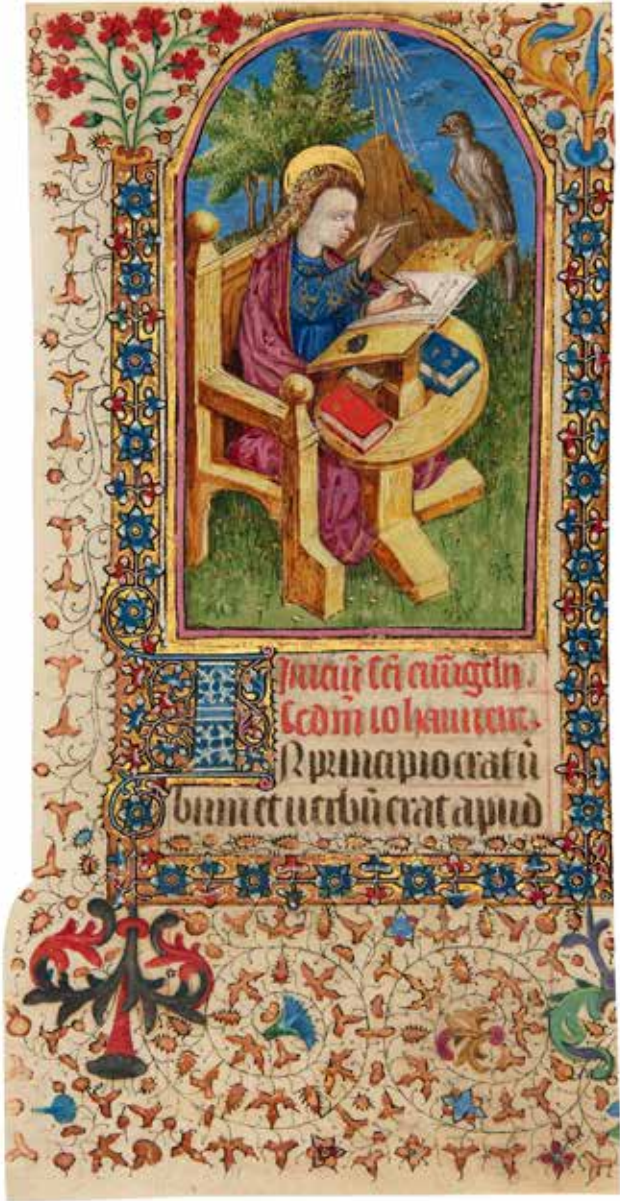 Iniciū sci euāgelii
Scdm iohannem.
IN principio erat ū
bum et uerbū erat apud